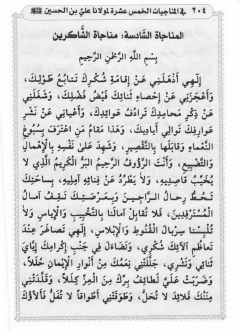 ٢٠٤ في المناجيات الخمس عشرة لمولانا علي بن الحسين
المناجاة السادسة: مناجاة الشاكرين
بِسْمِ اللَّهِ الرَّحْمٰنِ الرَّحِيمِ
إِلٰهِي أَذْهَلَنِي عَنْ إِقَامَةِ شُكْرِكَ تَتَابُعُ طَوْلِكَ،
وَأَعْجَزَنِي عَنْ إِحْصَاءِ ثَنَائِكَ فَيْضُ فَضْلِكَ، وَشَغَلَنِي
عَنْ ذِكْرِ مَحَامِدِكَ تَرَادُفُ عَوَائِدِكَ، وَأَعْيَانِي عَنْ نَشْرِ
عَوَارِفِكَ تَوَالِي أَيَادِيكَ، وَهٰذَا مَقَامُ مَنِ اعْتَرَفَ بِسُبُوغِ
النَّعْمَاءِ وَقَابَلَهَا بِالتَّقْصِيرِ، وَشَهِدَ عَلَى نَفْسِهِ بِالْإِهْمَالِ
وَالتَّضْيِيعِ، وَأَنْتَ الرَّؤُوفُ الرَّحِيمُ الْبَرُّ الْكَرِيمُ الَّذِي لَا
يُخَيِّبُ قَاصِدِيهِ، وَلَا يَطْرُدُ عَنْ فِنَائِهِ آمِلِيهِ، بِسَاحَتِكَ
تَحُطُّ رِحَالُ الرَّاجِينَ، وَبِعَرْصَتِكَ تَقِفُ آمَالُ
الْمُسْتَرْفِدِينَ، فَلَا تُقَابِلْ آمَالَنَا بِالتَّخْيِيبِ وَالْإِيَاسِ وَلَا
تُلْبِسْنَا سِرْبَالَ الْقُنُوطِ وَالْإِبْلَاسِ، إِلٰهِي تَصَاغَرَ عِنْدَ
تَعَاظُمِ آلَائِكَ شُكْرِي، وَتَضَاءَلَ فِي جَنْبِ إِكْرَامِكَ إِيَّايَ
ثَنَائِي وَنَشْرِي، جَلَّلَتْنِي نِعَمُكَ مِنْ أَنْوَارِ الْإِيمَانِ حُلَلًا،
وَضَرَبَتْ عَلَيَّ لَطَائِفُ بِرِّكَ مِنَ الْعِزِّ كِلَلًا، وَقَلَّدَتْنِي
مِنَنُكَ قَلَائِدَ لَا تُحَلُّ، وَطَوَّقَتْنِي أَطْوَاقًا لَا تُفَلُّ فَآلَاؤُكَ